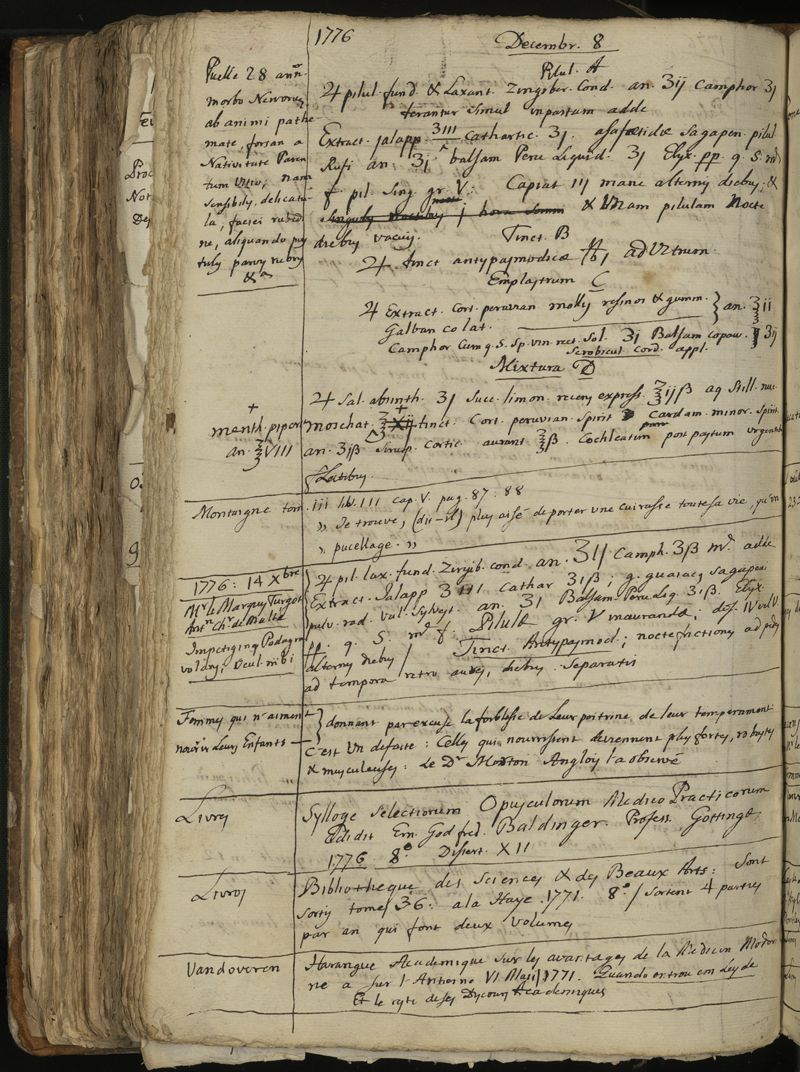 1776
Decembr. 8
Puellæ 28 ann.
morbo Nervorum
ab animi pathe
mate, forsan a
Nativitate Paren
tum Vitio, nam
sensibilis, delicatu
la, faciei rubedi
ne, aliquando pus
tulis parvis rubris
&a
Pilul. A
♃ pilul. fund. & Laxant. Zingiber. Cond. an. ʒij Camphor ʒj
terantur simul in pastam adde
Extract. jalapp. ʒiii Cathartic. ʒj. asafœtidæ Sagapen. pilul
Rufi an. ʒj balsam Peru Liquid. ʒj Elix. pp. q. S. m
f. pil. Sing. gr V: Capiat iij mane alternis diebus; &
& Unam pilulam Nocte
diebus vacuis.
Tinct. B
♃ tinct antispasmodicæ ad Vitrum.
Emplastrum C
♃ Extract. Cort. peruvian mollis resinos & gumm. } an. ℥ii
Galban colat.
Camphor Cum q. S. Sp. vin. rect. Sol. ʒj Balsam copaiv. ʒij
Scrobicul. Cord. appl.
Mixtura D
♃ Sal. absinth. ʒj Succ. limon. recens express. ℥ijß aq still. nuc
+ menth. piper
an. ℥VIII
moschat. tinct. Cort. peruvian. Spirit Cardam. minor. Spirit.
an. ʒiß Sirup. Cortic aurant ℥ß. Cochleatim post pastum urgentib
flatibus.
Montaigne tom. iii lib. III cap. V. pag. 87. 88
„ Je trouve, (dit-il) plus aisé de porter une cuirasse toute sa vie, qu'un
„ pucellage. „
1776: 14 Xbre
Mr le Marquis Turgot
Antn Chr de Malte
Impetigini Podagræ
volanti, Ocul.
♃ pil. lax. fund. Zingib. cond. an. ʒij Camph. ʒß m. adde
Extract. Jalapp ʒiii Cathar ʒiß; g. guaiaci, Sagapeni
pulv. rad. Val. Sylvest. an. ʒj Balsam Peru Liq. ʒiß. Elix.
pp. q. S. m f Pilulæ gr. V inaurandæ; dos. IV vel V
alternis diebus / Tinct. Antispasmod.; nocte frictiony ad pedes
ad tempora retro aures, diebus separatis
Femmes qui n'aiment
nourir Leurs Enfants
donnant par excuse la foiblesse de Leur poitrine, de leur temperament
C'est Un defaite: Celles qui nourrissent deviennent plus fortes, robustes
& musculeuses: Le Dr Morton Anglois l'a observé
Livres
Sylloge Selectiorum Opusculorum Medico Practicorum
Edidit Ern. Godfred. Baldinger. Profess. Gotting.
1776 8° Dissert. XII
Livres
Bibliotheque des Sciences & des Beaux Arts: Sont
sortis tomes 36. a la Haye. 1771. 8° / Sortent 4 parties
par an qui font deux Volumes
Vandoveren
Harangue Academique sur les avantages de la Medecin Moder
ne a sur l'Antienne VI Maji 1771.
Et le reste de ses Discours Academiques